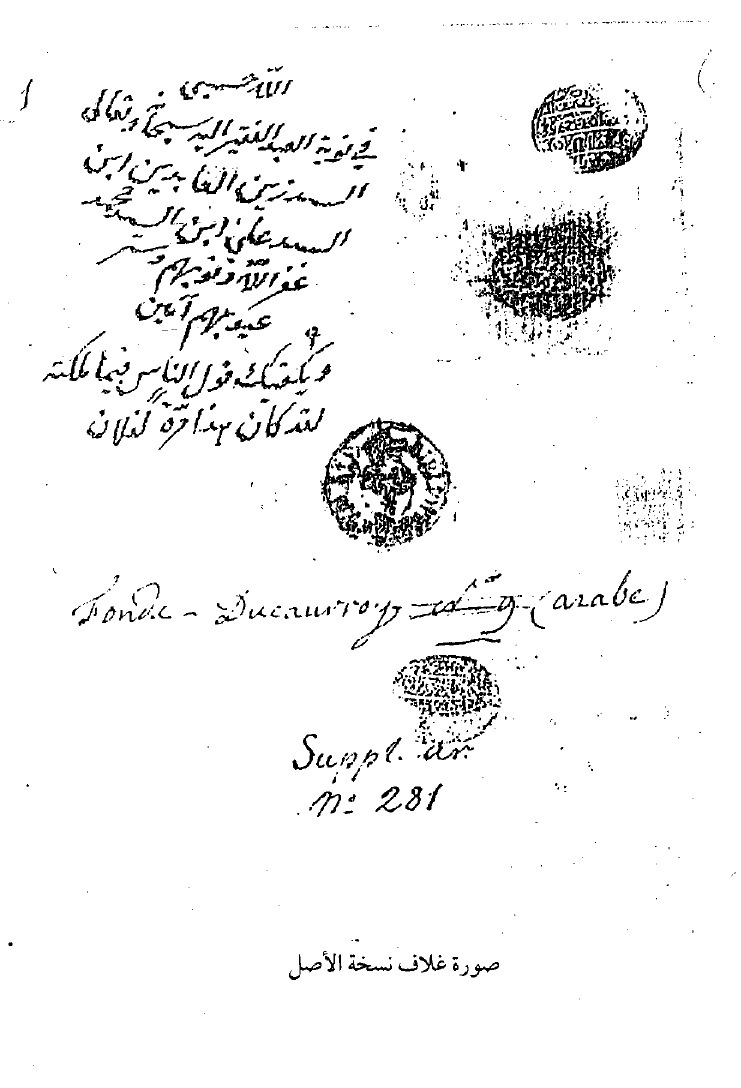 1
الله حسبي
في نوبة العبد الفقير اليه سبحانه وتعالى
السيد زين العابدين ابن
السيد علي ابن السيد محمد
غفر الله ذنوبهم وستر
عيوبهم آمين
ويكفيك قول الناس فيما ملكته
لقد كان هذا مرة لفلان
Fonds - Ducaurroy n° 9 (arabe)
Suppl. ar.
N° 281
صورة غلاف نسخة الأصل